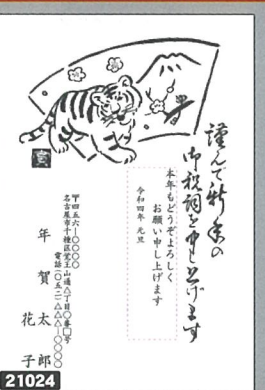 謹んで新春の
御祝詞を申し上げます
本年もどうぞよろしく
お願い申し上げます
令和四年 元旦
〒四五六-〇〇〇〇
名古屋市千種区覚王山通△丁目〇番□号
電話(〇五二)△△△-〇〇〇〇
年賀太郎
花子
21024